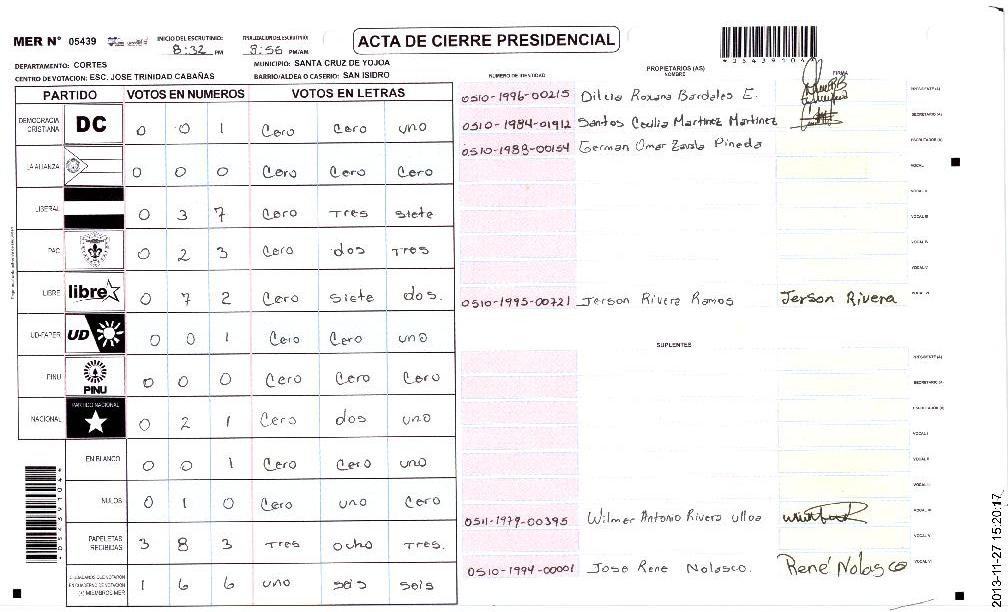 MER N° 05439
INICIO DEL ESCRUTINIO: 8:32 PM
FINALIZACION DEL ESCRUTINIO: 8:56 PM/AM
ACTA DE CIERRE PRESIDENCIAL
*05439104*
DEPARTAMENTO: CORTES
MUNICIPIO: SANTA CRUZ DE YOJOA
CENTRO DE VOTACION: ESC. JOSE TRINIDAD CABAÑAS
BARRIO/ALDEA O CASERIO: SAN ISIDRO
PARTIDO VOTOS EN NUMEROS VOTOS EN LETRAS
DEMOCRACIA CRISTIANA DC 0 0 1 Cero Cero uno
LA ALIANZA 0 0 0 Cero Cero Cero
LIBERAL 0 3 7 Cero Tres siete
PAC 0 2 3 Cero dos Tres
LIBRE libre 0 7 2 Cero Siete dos.
UD-FAPER UD 0 0 1 Cero Cero uno
PINU PINU 0 0 0 Cero Cero Cero
NACIONAL PARTIDO NACIONAL 0 2 1 Cero dos uno
EN BLANCO 0 0 1 Cero Cero uno
NULOS 0 1 0 Cero uno Cero
PAPELETAS RECIBIDAS 3 8 3 Tres ocho Tres.
CIUDADANOS QUE VOTARON EN CUADERNO DE VOTACION (+) MIEMBROS MER 1 6 6 uno seis seis
*05439104*
NUMERO DE IDENTIDAD PROPIETARIOS (AS) NOMBRE FIRMA
0510-1996-00215 Dilcia Roxana Bardales E. PRESIDENTE (A)
0510-1984-01912 Santos Cecilia Martinez Martinez SECRETARIO (A)
0510-1988-00154 German Omar Zavala Pineda ESCRUTADOR (A)
VOCAL I
VOCAL II
VOCAL III
VOCAL IV
VOCAL V
0510-1995-00721 Jerson Rivera Ramos Jerson Rivera VOCAL VI
SUPLENTES
PRESIDENTE (A)
SECRETARIO (A)
ESCRUTADOR (A)
VOCAL I
VOCAL II
VOCAL III
0511-1979-00395 Wilmer Antonio Rivera ulloa VOCAL IV
VOCAL V
0510-1994-00001 Jose Rene Nolasco. René Nolasco VOCAL VI
2013-11-27 15:20:17